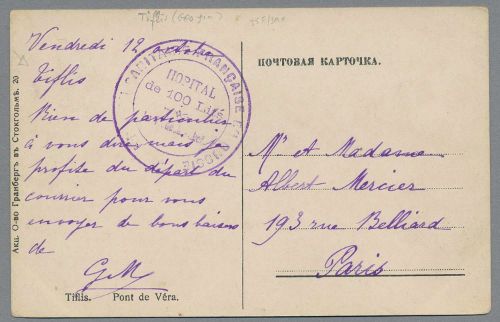 Tiflis (Georgia)
Vendredi 12 octobre
Tiflis
Rien de particulier
à vous dire, mais je
profite du départ du
courrier pour vous
envoyer de bons baisers
de
GM
HOPITAL
de 100 Lits
FRANÇAISE
ПОЧТОВАЯ КАРТОЧКА.
Mr et Madame
Albert Mercier
193 rue Belliard
Paris
Tiflis. Pont de Véra.
Акц. О-во Гранбергъ въ Стокгольмѣ. 20